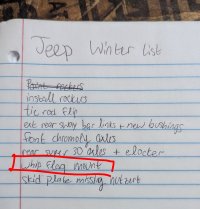 Jeep Winter list
Paint rockers
install rockers
tie rod flip
ext rear sway bar links + new bushings
front chromoly axles
rear super 30 axles + elocker
whip flag mount
skid plate missing nutzert